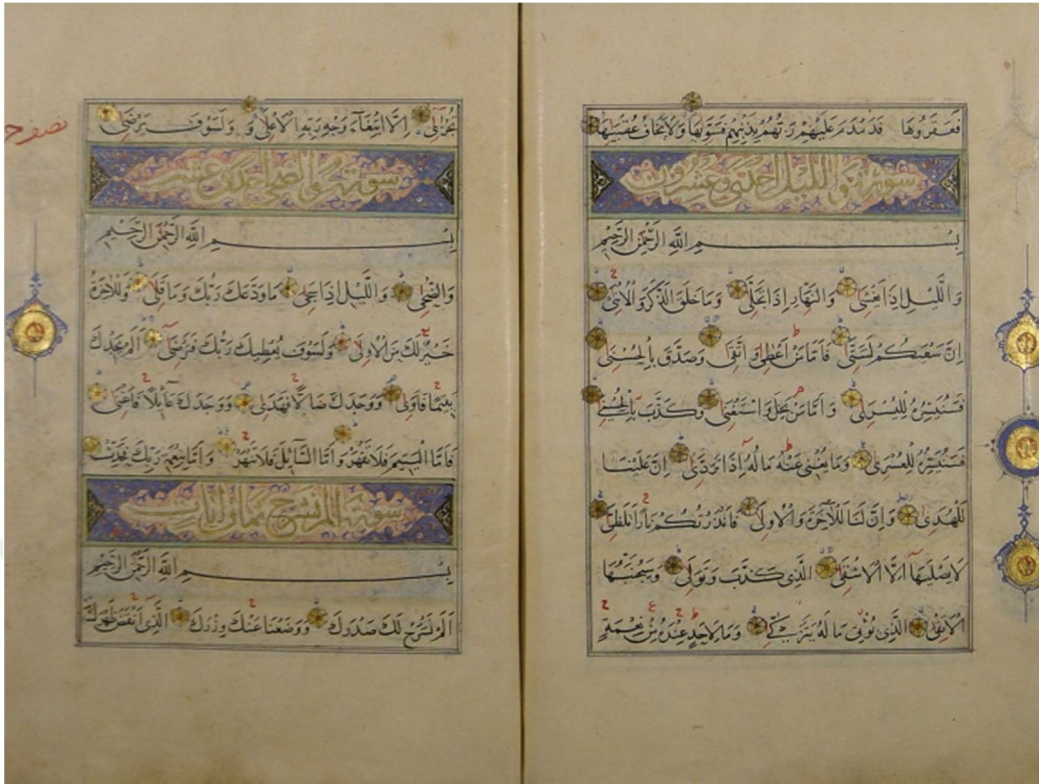 فَعَقَرُوهَا فَدَمْدَمَ عَلَيْهِمْ رَبُّهُمْ بِذَنْبِهِمْ فَسَوّٰيهَا وَلَا يَخَافُ عُقْبٰيهَا
سورة والليل احدى وعشرون
بِسْمِ اللَّهِ الرَّحْمٰنِ الرَّحِيمِ
وَالَّيْلِ اِذَا يَغْشٰى وَالنَّهَارِ اِذَا تَجَلّٰى وَمَا خَلَقَ الذَّكَرَ وَالْاُنْثٰى
اِنَّ سَعْيَكُمْ لَشَتّٰى فَاَمَّا مَنْ اَعْطٰى وَاتَّقٰى وَصَدَّقَ بِالْحُسْنٰى
فَسَنُيَسِّرُهُ لِلْيُسْرٰى وَاَمَّا مَنْ بَخِلَ وَاسْتَغْنٰى وَكَذَّبَ بِالْحُسْنٰى
فَسَنُيَسِّرُهُ لِلْعُسْرٰى وَمَا يُغْنٖى عَنْهُ مَالُهُ اِذَا تَرَدّٰى اِنَّ عَلَيْنَا
لَلْهُدٰى وَاِنَّ لَنَا لَلْاٰخِرَةَ وَالْاُولٰى فَاَنْذَرْتُكُمْ نَارًا تَلَظّٰى
لَا يَصْلٰيهَا اِلَّا الْاَشْقٰى الَّذِى كَذَّبَ وَتَوَلّٰى وَسَيُجَنَّبُهَا
الْاَتْقٰى الَّذِى يُؤْتٖى مَالَهُ يَتَزَكّٰى وَمَا لِاَحَدٍ عِنْدَهُ مِنْ نِعْمَةٍ
تُجْزٰى اِلَّا ابْتِغَاءَ وَجْهِ رَبِّهِ الْاَعْلٰى وَلَسَوْفَ يَرْضٰى
سورة والضحى احدى عشر
بِسْمِ اللَّهِ الرَّحْمٰنِ الرَّحِيمِ
وَالضُّحٰى وَالَّيْلِ اِذَا سَجٰى مَا وَدَّعَكَ رَبُّكَ وَمَا قَلٰى وَلَلْاٰخِرَةُ
خَيْرٌ لَكَ مِنَ الْاُولٰى وَلَسَوْفَ يُعْطِيكَ رَبُّكَ فَتَرْضٰى اَلَمْ يَجِدْكَ
يَتِيمًا فَاٰوٰى وَوَجَدَكَ ضَالًّا فَهَدٰى وَوَجَدَكَ عَائِلًا فَاَغْنٰى
فَاَمَّا الْيَتِيمَ فَلَا تَقْهَرْ وَاَمَّا السَّائِلَ فَلَا تَنْهَرْ وَاَمَّا بِنِعْمَةِ رَبِّكَ فَحَدِّثْ
سورة الم نشرح ثمان ايات
بِسْمِ اللَّهِ الرَّحْمٰنِ الرَّحِيمِ
اَلَمْ نَشْرَحْ لَكَ صَدْرَكَ وَوَضَعْنَا عَنْكَ وِزْرَكَ الَّذِى اَنْقَضَ ظَهْرَكَ